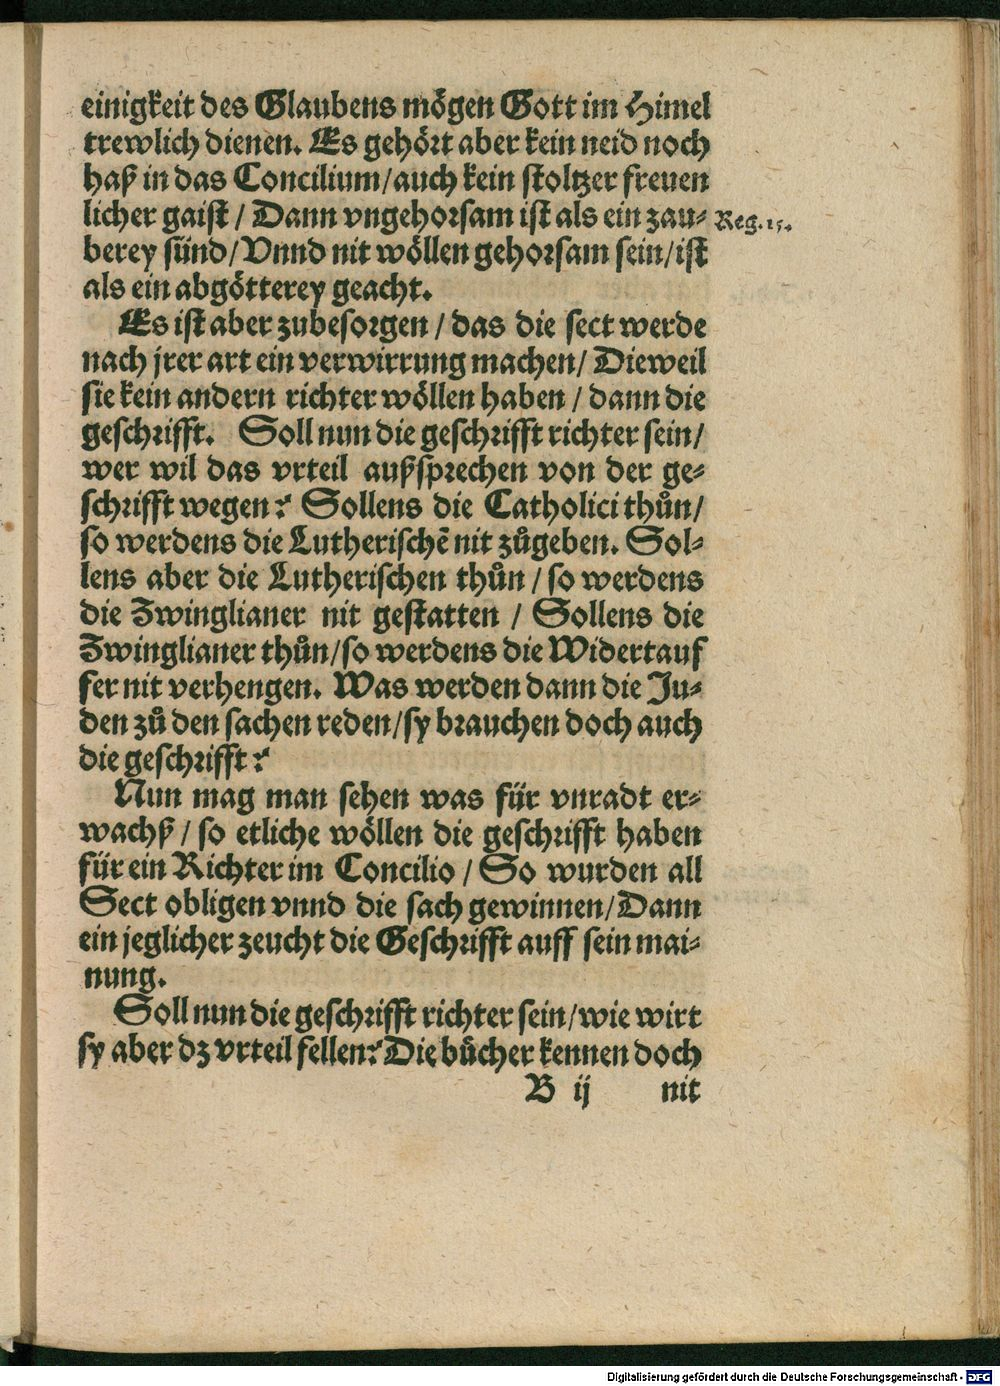 einigkeit des Glaubens mögen Gott im Himel
trewlich dienen. Es gehört aber kein neid noch
haß in das Concilium/auch kein stoltzer freuen
licher gaist / Dann vngehorsam ist als ein zau⸗
Reg. 15.
berey sünd/Vnnd nit wöllen gehorsam sein/ist
als ein abgötterey geacht.
Es ist aber zubesorgen / das die sect werde
nach jrer art ein verwirrung machen/ Dieweil
sie kein andern richter wöllen haben / dann die
geschrifft. Soll nun die geschrifft richter sein/
wer wil das vrteil außsprechen von der ge⸗
schrifft wegen? Sollens die Catholici thůn/
so werdens die Lutherischē nit zůgeben. Sol⸗
lens aber die Lutherischen thůn / so werdens
die Zwinglianer nit gestatten / Sollens die
Zwinglianer thůn/so werdens die Widertauf
fer nit verhengen. Was werden dann die Ju⸗
den zů den sachen reden/sy brauchen doch auch
die geschrifft?
Nun mag man sehen was für vnradt er⸗
wachß / so etliche wöllen die geschrifft haben
für ein Richter im Concilio / So wurden all
Sect obligen vnnd die sach gewinnen/Dann
ein jeglicher zeucht die Geschrifft auff sein mai⸗
nung.
Soll nun die geschrifft richter sein/wie wirt
sy aber dz vrteil fellen? Die bůcher kennen doch
B ij nit
Digitalisierung gefördert durch die Deutsche Forschungsgemeinschaft - DFG